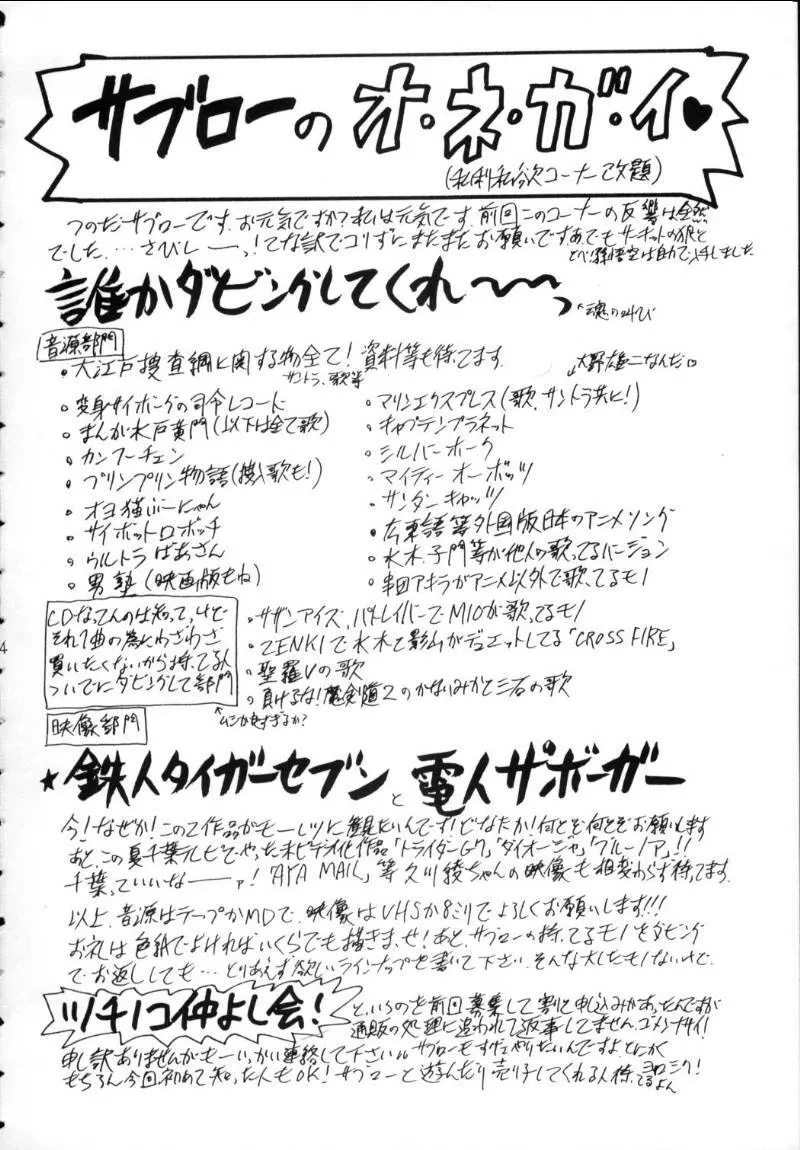 サブローの オ・ネ・ガ・イ♥
(私利私欲コーナー改題)
つのだサブローです。お元気ですか?私は元気です。前回このコーナーの反響は全然
でした…さびしーーっ!てな訳でコリずにまたまたお願いです。あ、でもサーキットの狼と
とべ!孫悟空は自力で入手しました。
誰かダビングしてくれ〜〜っ
↑魂の叫び
音源部門
・大江戸捜査網に関する物全て!資料等も待ってます。
サントラ、歌等
↓大野雄二なんだ♡
・変身サイボーグの司令レコード
・まんが水戸黄門(以下は全て歌)
・カンフーチェン
・プリンプリン物語(挿入歌も!)
・オヨネコぶーにゃん
・サイボットロボッチ
・ウルトラばあさん
・男塾(映画版もね)
・マリンエクスプレス(歌、サントラ共に!)
・キャプテンプラネット
・シルバーホーク
・マイティーオーボッツ
・サンダーキャッツ
・広東語等外国版日本のアニメソング
・水木、子門等が他人の歌ってるバージョン
・串田アキラがアニメ以外で歌ってるモノ
CDなってんのは知ってっけど
それ1曲の為にわざわざ
買いたくないから持ってる人
ついでにダビングして部門
↑ムシが良すぎるか?
・サザンアイズ、パトレイバーでMIOが歌ってるモノ
・ZENKIで水木と影山がデュエットしてる「CROSS FIRE」
・聖羅Vの歌
・負けるな!魔剣道2のかないみかと三石の歌
映像部門
★鉄人タイガーセブンと電人ザボーガー
今!なぜか!この2作品がモーレツに観たいんです!どなたか!何とぞ何とぞお願いします
あと、この夏千葉テレビでやった未ビデオ化作品「トライダーG7」「ダイオージャ」「ブルーノア」!!
千葉っていいなーァ!「AYA MAIL」等久川綾ちゃんの映像も相変わらず待ってます。
以上、音源はテープかMDで、映像はVHSか8ミリでよろしくお願いします!!!
お礼は色紙でよければいくらでも描きまっせ!あと、サブローの持ってるモノをダビング
でお返ししても…とりあえず欲しいラインナップを書いて下さい。そんな大したモノないけど。
ツチノコ仲よし会!
というのを前回募集して割と申込みがあったんですが
通販の処理に追われて返事してません。ゴメンナサイ!
申し訳ありませんがもーいっかい連絡して下さい。サブローもすげェやりたいんですよ。とにかく
もちろん今回初めて知った人もOK!サブローと遊んだり売り子してくれる人待ってるよん
ヨロシク!
4